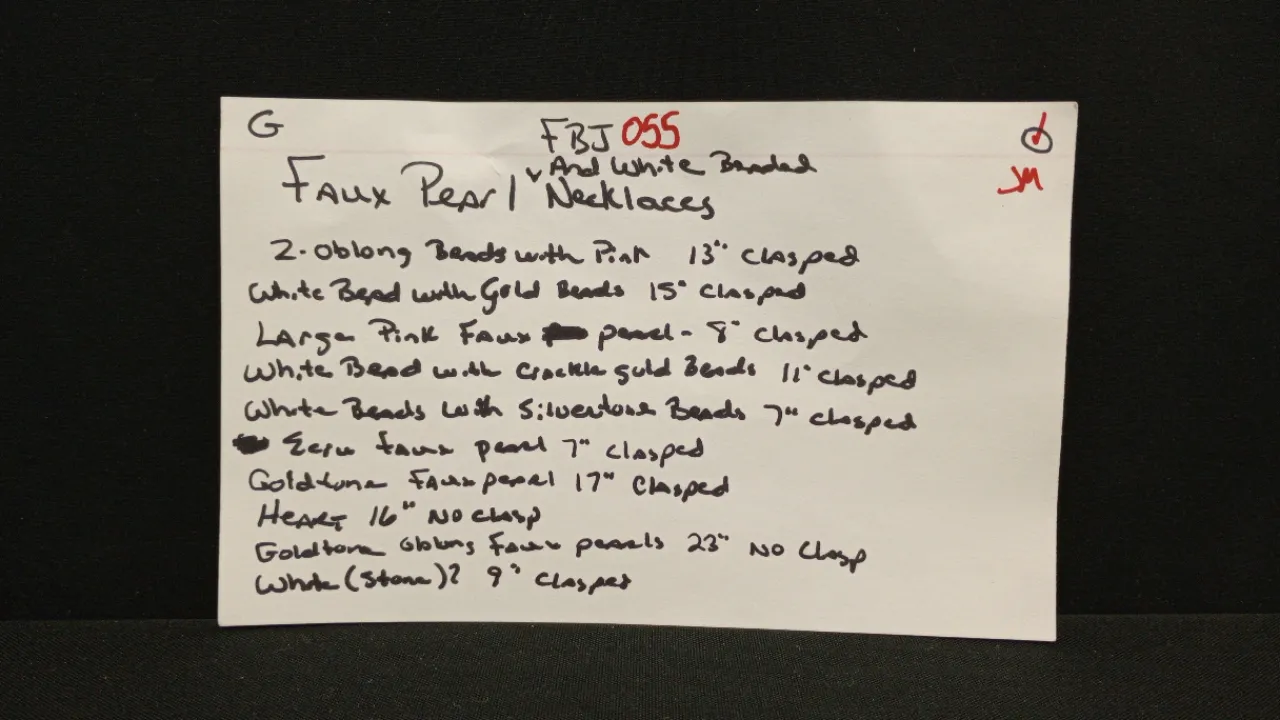 G
FBJ 055
And White Beaded
Faux Pearl Necklaces
JM
2-Oblong Beads with Pink 13" Clasped
White Bead with Gold Beads 15" Clasped
Large Pink Faux pearl - 8" Clasped
White Bead with crackle gold Beads 11" Clasped
White Beads with Silvertone Beads 7" Clasped
Ecru faux pearl 7" Clasped
Goldtone Faux pearl 17" Clasped
Heart 16" No Clasp
Goldtone oblong Faux pearls 23" No Clasp
White (Stone)? 9" Clasped